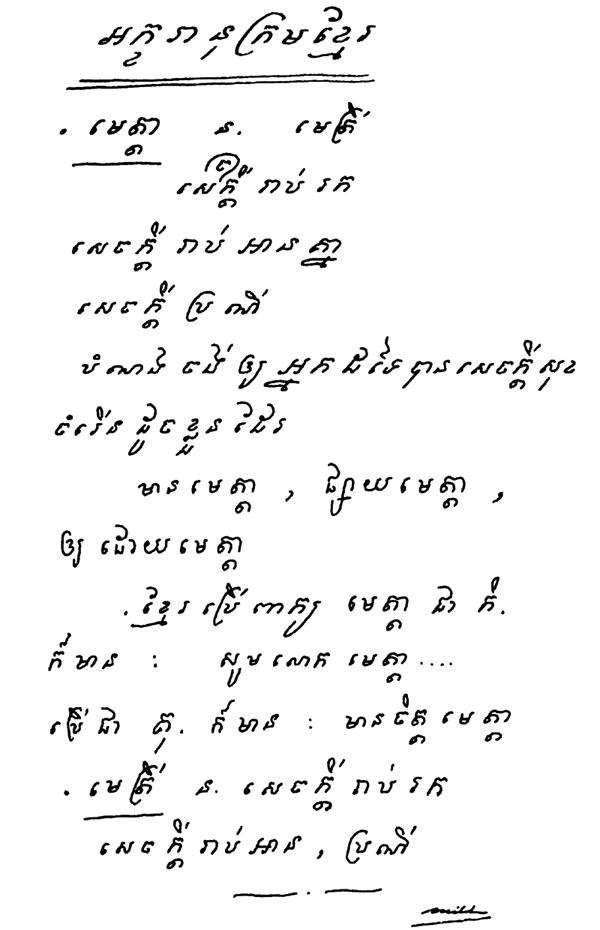 អក្ខរានុក្រមខ្មែរ
. មេត្តា ន. មេត្រី
សេចក្ដី រាប់ រក
សេចក្ដី រាប់ អាន គ្នា
សេចក្ដី ប្រណី
បំណង ចង់ ឲ្យ អ្នក ដទៃ បាន សេចក្ដី សុខ
ចំរើន ដូច ខ្លួន ដែរ
មាន មេត្តា , ផ្សាយ មេត្តា ,
ឲ្យ ដោយ មេត្តា
. ខ្មែរ ប្រើ ពាក្យ មេត្តា ជា កិ.
ក៏ មាន : សូម លោក មេត្តា ....
ប្រើ ជា គុ. ក៏ មាន : មាន ចិត្ត មេត្តា
. មេត្រី ន. សេចក្ដី រាប់ រក
សេចក្ដី រាប់ អាន , ប្រណី